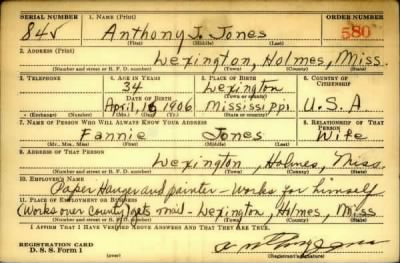 SERIAL NUMBER 1. NAME (Print) ORDER NUMBER
845 Anthony J. Jones 580
(First) (Middle) (Last)
2. ADDRESS (Print)
Lexington, Holmes, Miss.
(Number and street or R. F. D. number) (Town) (County) (State)
3. TELEPHONE 4. AGE IN YEARS 5. PLACE OF BIRTH 6. COUNTRY OF CITIZENSHIP
34 Lexington
(Town or county)
DATE OF BIRTH
April, 16 1906 Mississippi U.S.A.
(Exchange) (Number) (Mo.) (Day) (Yr.) (State or country)
7. NAME OF PERSON WHO WILL ALWAYS KNOW YOUR ADDRESS 8. RELATIONSHIP OF THAT PERSON
Fannie Jones Wife
(Mr., Mrs., Miss) (First) (Middle) (Last)
9. ADDRESS OF THAT PERSON
Lexington, Holmes, Miss.
(Number and street or R. F. D. number) (Town) (County) (State)
10. EMPLOYER'S NAME
Paper Hanger and painter - Works for himself
11. PLACE OF EMPLOYMENT OR BUSINESS
(Works over county) gets mail - Lexington, Holmes, Miss
(Number and street or R. F. D. number) (Town) (County) (State)
I AFFIRM THAT I HAVE VERIFIED ABOVE ANSWERS AND THAT THEY ARE TRUE.
REGISTRATION CARD
D. S. S. Form 1 (Registrant's signature)